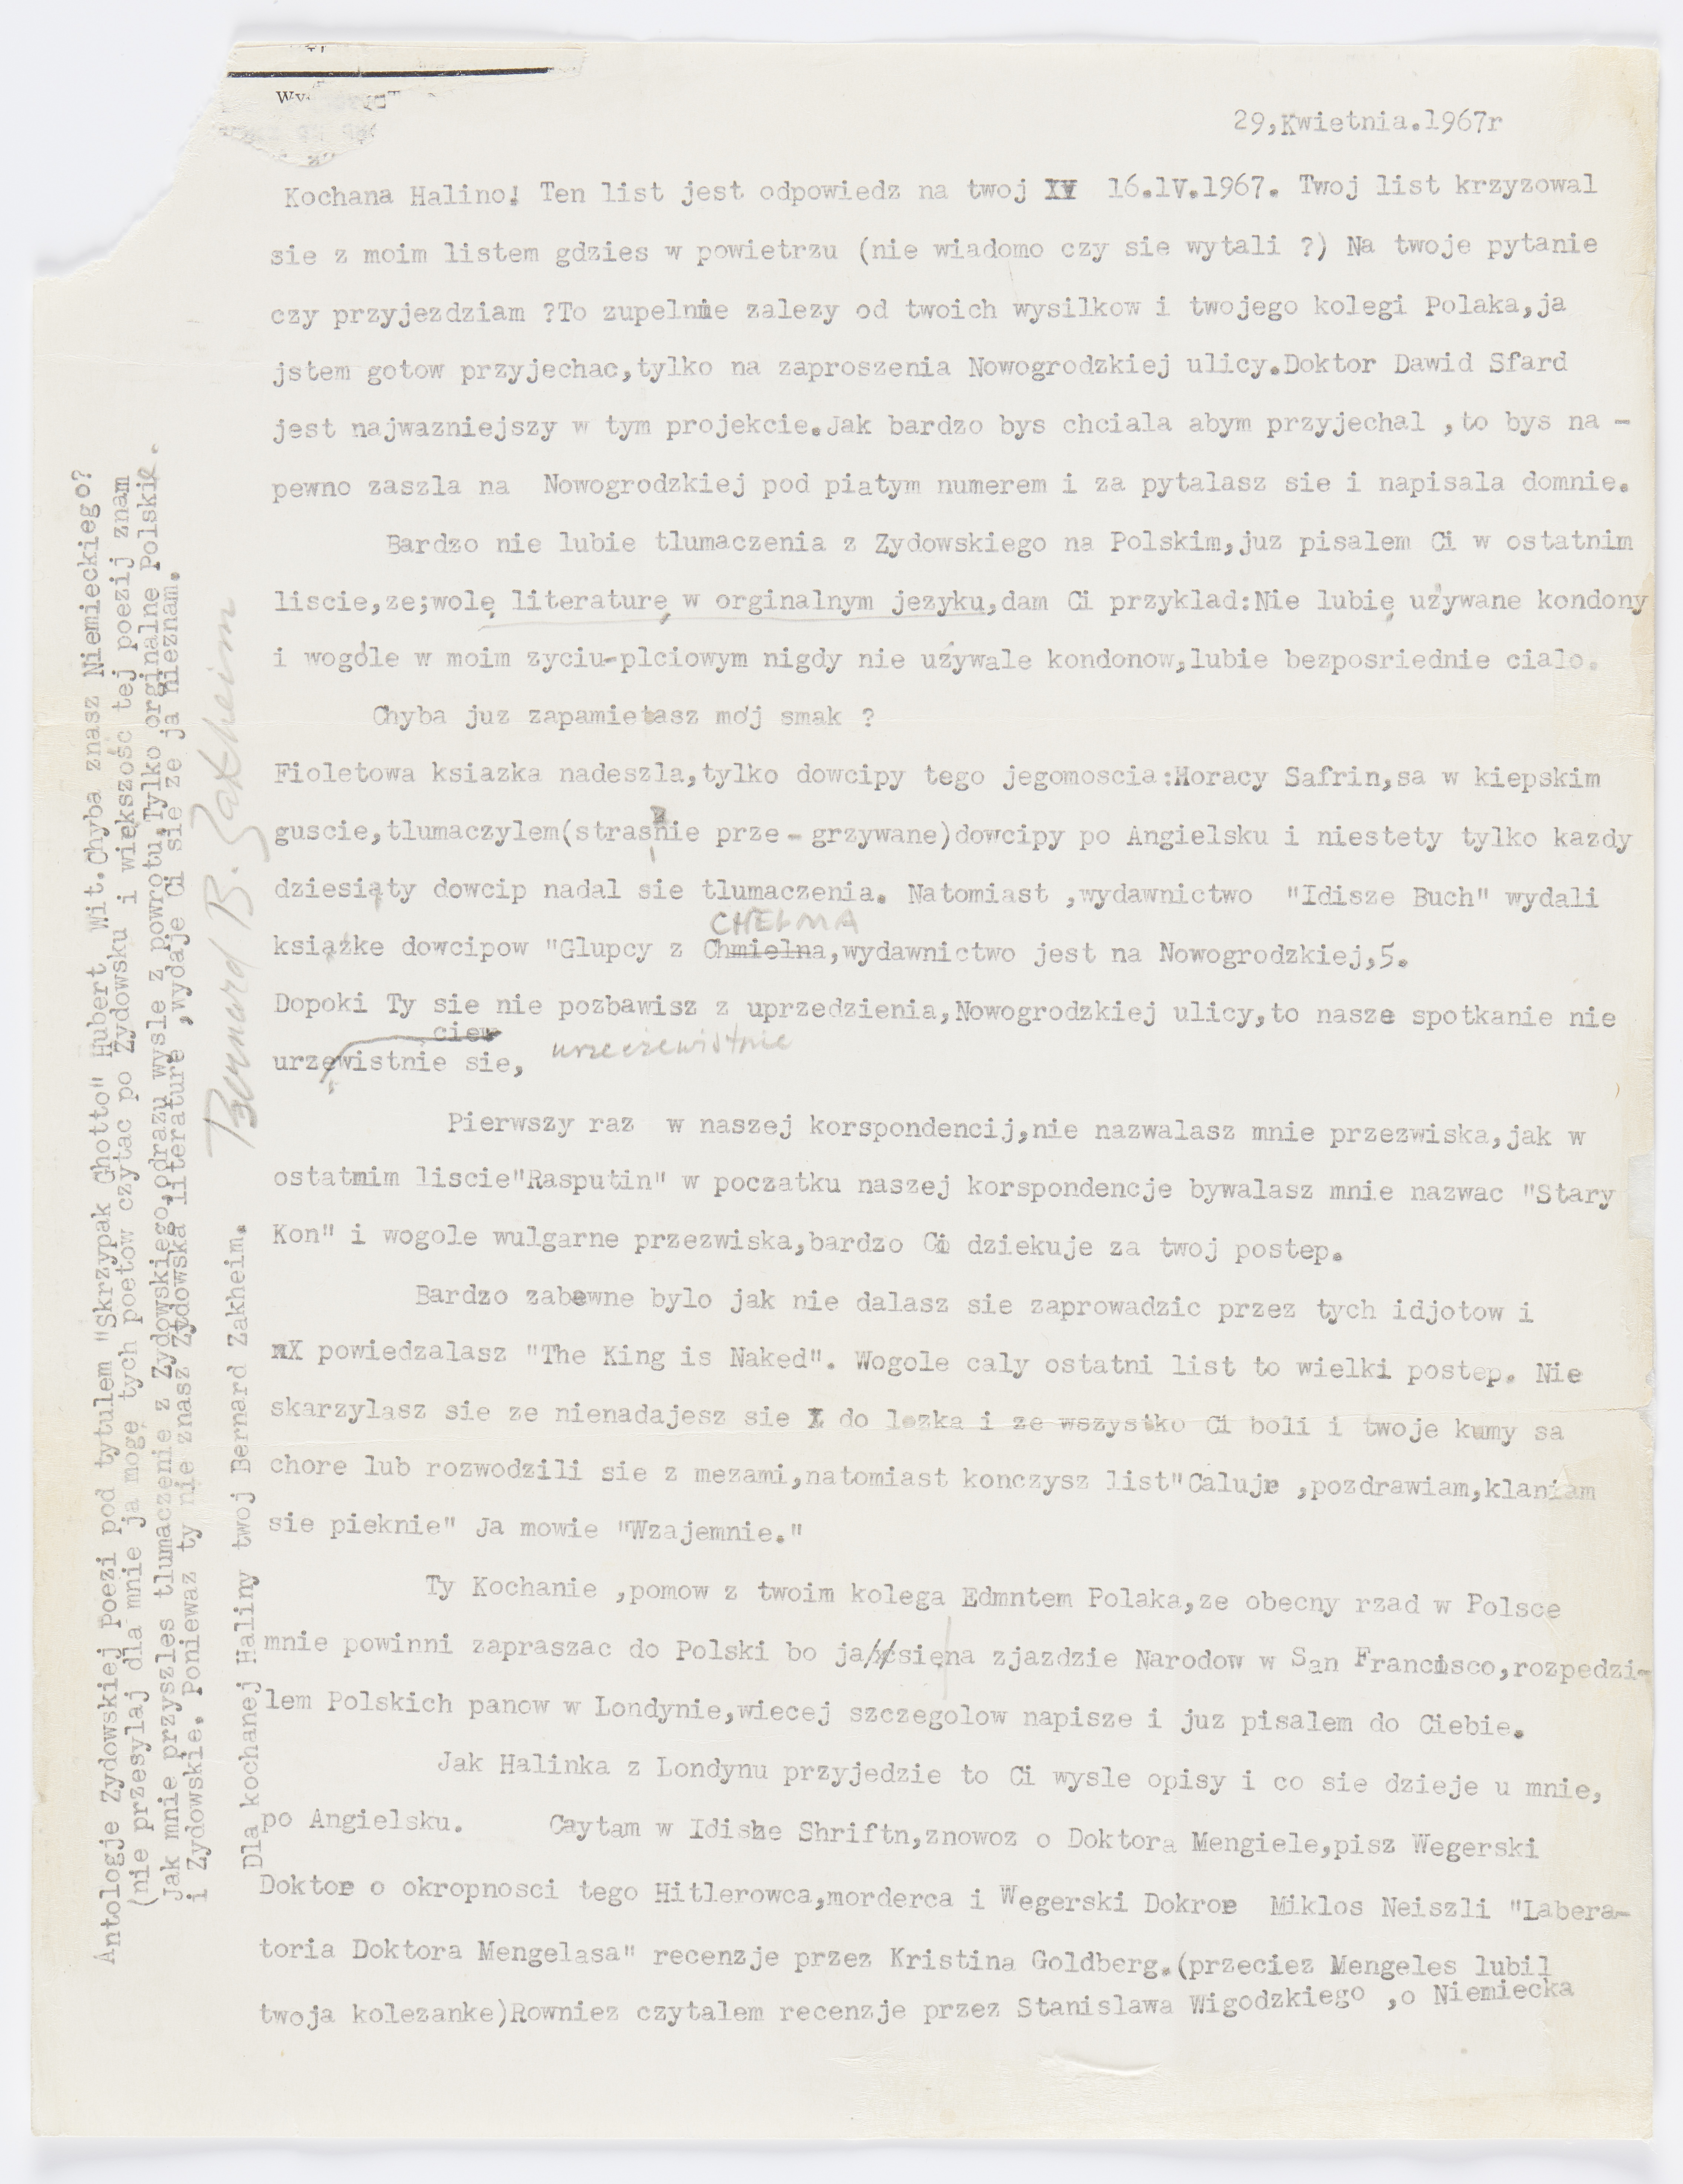 29,Kwietnia.1967r
Kochana Halino! Ten list jest odpowiedz na twoj XV 16.lV.1967. Twoj list krzyzowal
sie z moim listem gdzies w powietrzu (nie wiadomo czy sie wytali ?) Na twoje pytanie
czy przyjezdziam ?To zupelnie zalezy od twoich wysilkow i twojego kolegi Polaka,ja
jstem gotow przyjechac,tylko na zaproszenia Nowogrodzkiej ulicy.Doktor Dawid Sfard
jest najwazniejszy w tym projekcie.Jak bardzo bys chciala abym przyjechal ,to bys na -
pewno zaszla na Nowogrodzkiej pod piatym numerem i za pytalasz sie i napisala domnie.
Bardzo nie lubie tlumaczenia z Zydowskiego na Polskim,juz pisalem Ci w ostatnim
liscie,ze;wolę literaturę w orginalnym jezyku,dam Ci przyklad:Nie lubię używane kondony
i wogóle w moim zyciu-plciowym nigdy nie używale kondonow,lubie bezposriednie cialo.
Chyba juz zapamietasz mój smak ?
Fioletowa ksiazka nadeszla,tylko dowcipy tego jegomoscia:Horacy Safrin,sa w kiepskim
guscie,tlumaczylem(strasznie prze - grzywane)dowcipy po Angielsku i niestety tylko kazdy
dziesiąty dowcip nadal sie tlumaczenia. Natomiast ,wydawnictwo "Idisze Buch" wydali
CHEŁMA
książke dowcipow "Glupcy z Chmielna,wydawnictwo jest na Nowogrodzkiej,5.
Dopoki Ty sie nie pozbawisz z uprzedzienia,Nowogrodzkiej ulicy,to nasze spotkanie nie
ciew
urzewistnie sie, urzeczewistnie
Pierwszy raz w naszej korspondencij,nie nazwalasz mnie przezwiska,jak w
ostatmim liscie"Rasputin" w poczatku naszej korspondencje bywalasz mnie nazwac "Stary
Kon" i wogole wulgarne przezwiska,bardzo Ci dziekuje za twoj postep.
Bardzo zabewne bylo jak nie dalasz sie zaprowadzic przez tych idjotow i
nX powiedzalasz "The King is Naked". Wogole caly ostatni list to wielki postep. Nie
skarzylasz sie ze nienadajesz sie X do lozka i ze wszystko Ci boli i twoje kumy sa
chore lub rozwodzili sie z mezami,natomiast konczysz list"Caluje ,pozdrawiam,klaniam
sie pieknie" Ja mowie "Wzajemnie."
Ty Kochanie ,pomow z twoim kolega Edmntem Polaka,ze obecny rzad w Polsce
mnie powinni zapraszac do Polski bo ja się na zjazdzie Narodow w San Francisco,rozpedzi-
lem Polskich panow w Londynie,wiecej szczegolow napisze i juz pisalem do Ciebie.
Jak Halinka z Londynu przyjedzie to Ci wysle opisy i co sie dzieje u mnie,
po Angielsku. Caytam w Idishe Shriftn,znowoz o Doktora Mengiele,pisz Wegerski
Doktor o okropnosci tego Hitlerowca,morderca i Wegerski Dokror Miklos Neiszli "Labera-
toria Doktora Mengelasa" recenzje przez Kristina Goldberg.(przeciez Mengeles lubil
twoja kolezanke)Rowniez czytalem recenzje przez Stanislawa Wigodzkiego ,o Niemiecka
Antologje Zydowskiej Poezi pod tytulem "Skrzypak Ghotto" Hubert Wit.Chyba znasz Niemieckiego?
(nie przesylaj dla mnie ja mogę tych poetow czytac po Zydowsku i większośc tej poezij znam
Jak mnie przyszles tlumaczenie z Zydowskiego,odrazu wysle z powrotu.Tylko orginalne Polskie.
i Zydowskie. poniewaz ty nie znasz Zydowska literature ,wydaje Ci sie ze ja nieznam.
Dla kochanej Haliny twoj Bernard Zakheim.
Bernard B. Zakheim